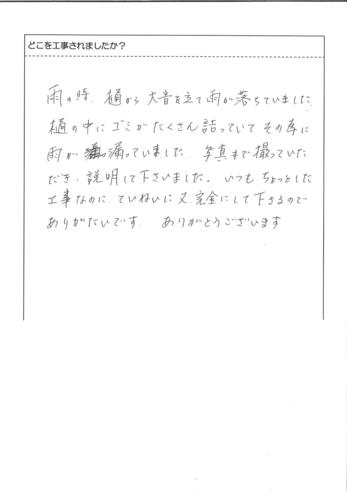 どこを工事されましたか？
雨の時、樋から大音を立て雨が落ちていました。
樋の中にゴミがたくさん詰っていてその為に
雨が漏っていました。写真まで撮っていた
だき、説明して下さいました。いつもちょっとした
工事なのに、ていねいに又、完全にして下さるので
ありがたいです。ありがとうございます